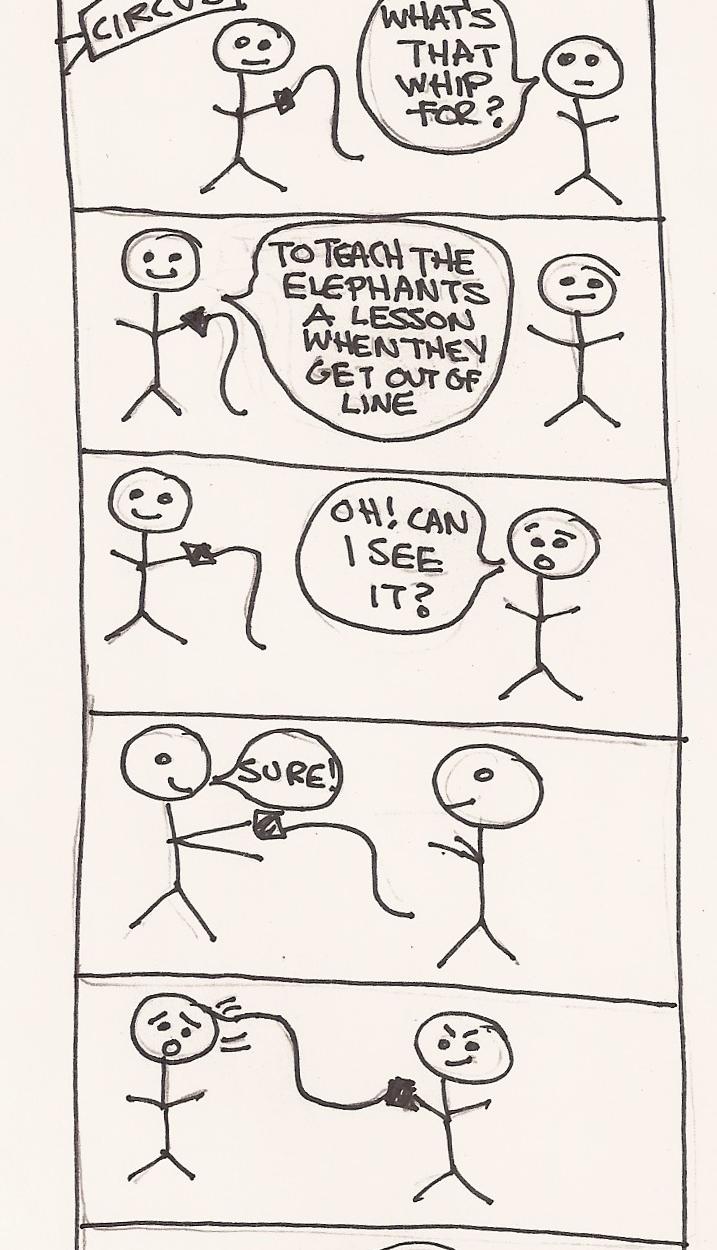 CIRCUS
WHAT'S
THAT
WHIP
FOR?
TO TEACH THE
ELEPHANTS
A LESSON
WHEN THEY
GET OUT OF
LINE
OH! CAN
I SEE
IT?
SURE!